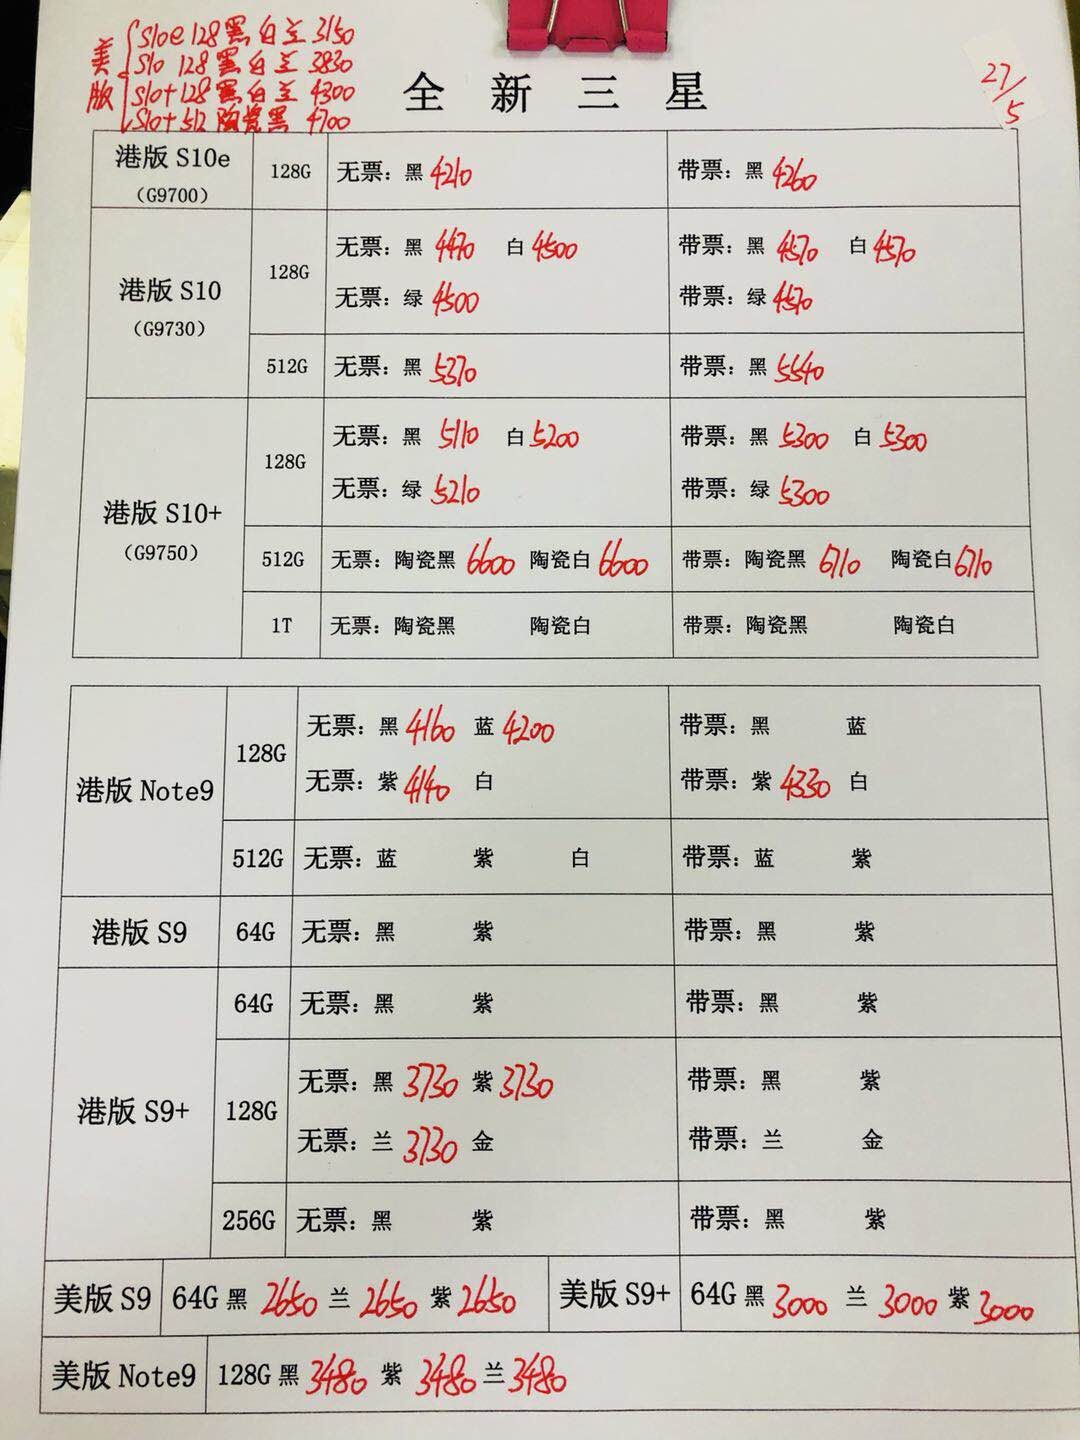 美版
S10e 128黑白兰 3150
S10 128黑白兰 3830
S10+ 128黑白兰 4300
S10+ 512 陶瓷黑 4700
全新三星
27/5
港版 S10e
(G9700)
128G
无票：黑 4210
带票：黑 4260
港版 S10
(G9730)
128G
无票：黑 4470 白 4500
带票：黑 4570 白 4570
无票：绿 4500
带票：绿 4570
512G
无票：黑 5370
带票：黑 5540
港版 S10+
(G9750)
128G
无票：黑 5110 白 5200
带票：黑 5300 白 5300
无票：绿 5210
带票：绿 5300
512G
无票：陶瓷黑 6600 陶瓷白 6600
带票：陶瓷黑 6710 陶瓷白 6710
1T
无票：陶瓷黑 陶瓷白
带票：陶瓷黑 陶瓷白
港版 Note9
128G
无票：黑 4160 蓝 4200
带票：黑 蓝
无票：紫 4140 白
带票：紫 4330 白
512G
无票：蓝 紫 白
带票：蓝 紫
港版 S9
64G
无票：黑 紫
带票：黑 紫
港版 S9+
64G
无票：黑 紫
带票：黑 紫
128G
无票：黑 3730 紫 3730
带票：黑 紫
无票：兰 3730 金
带票：兰 金
256G
无票：黑 紫
带票：黑 紫
美版 S9
64G 黑 2650 兰 2650 紫 2650
美版 S9+
64G 黑 3000 兰 3000 紫 3000
美版 Note9
128G 黑 3480 紫 3480 兰 3480